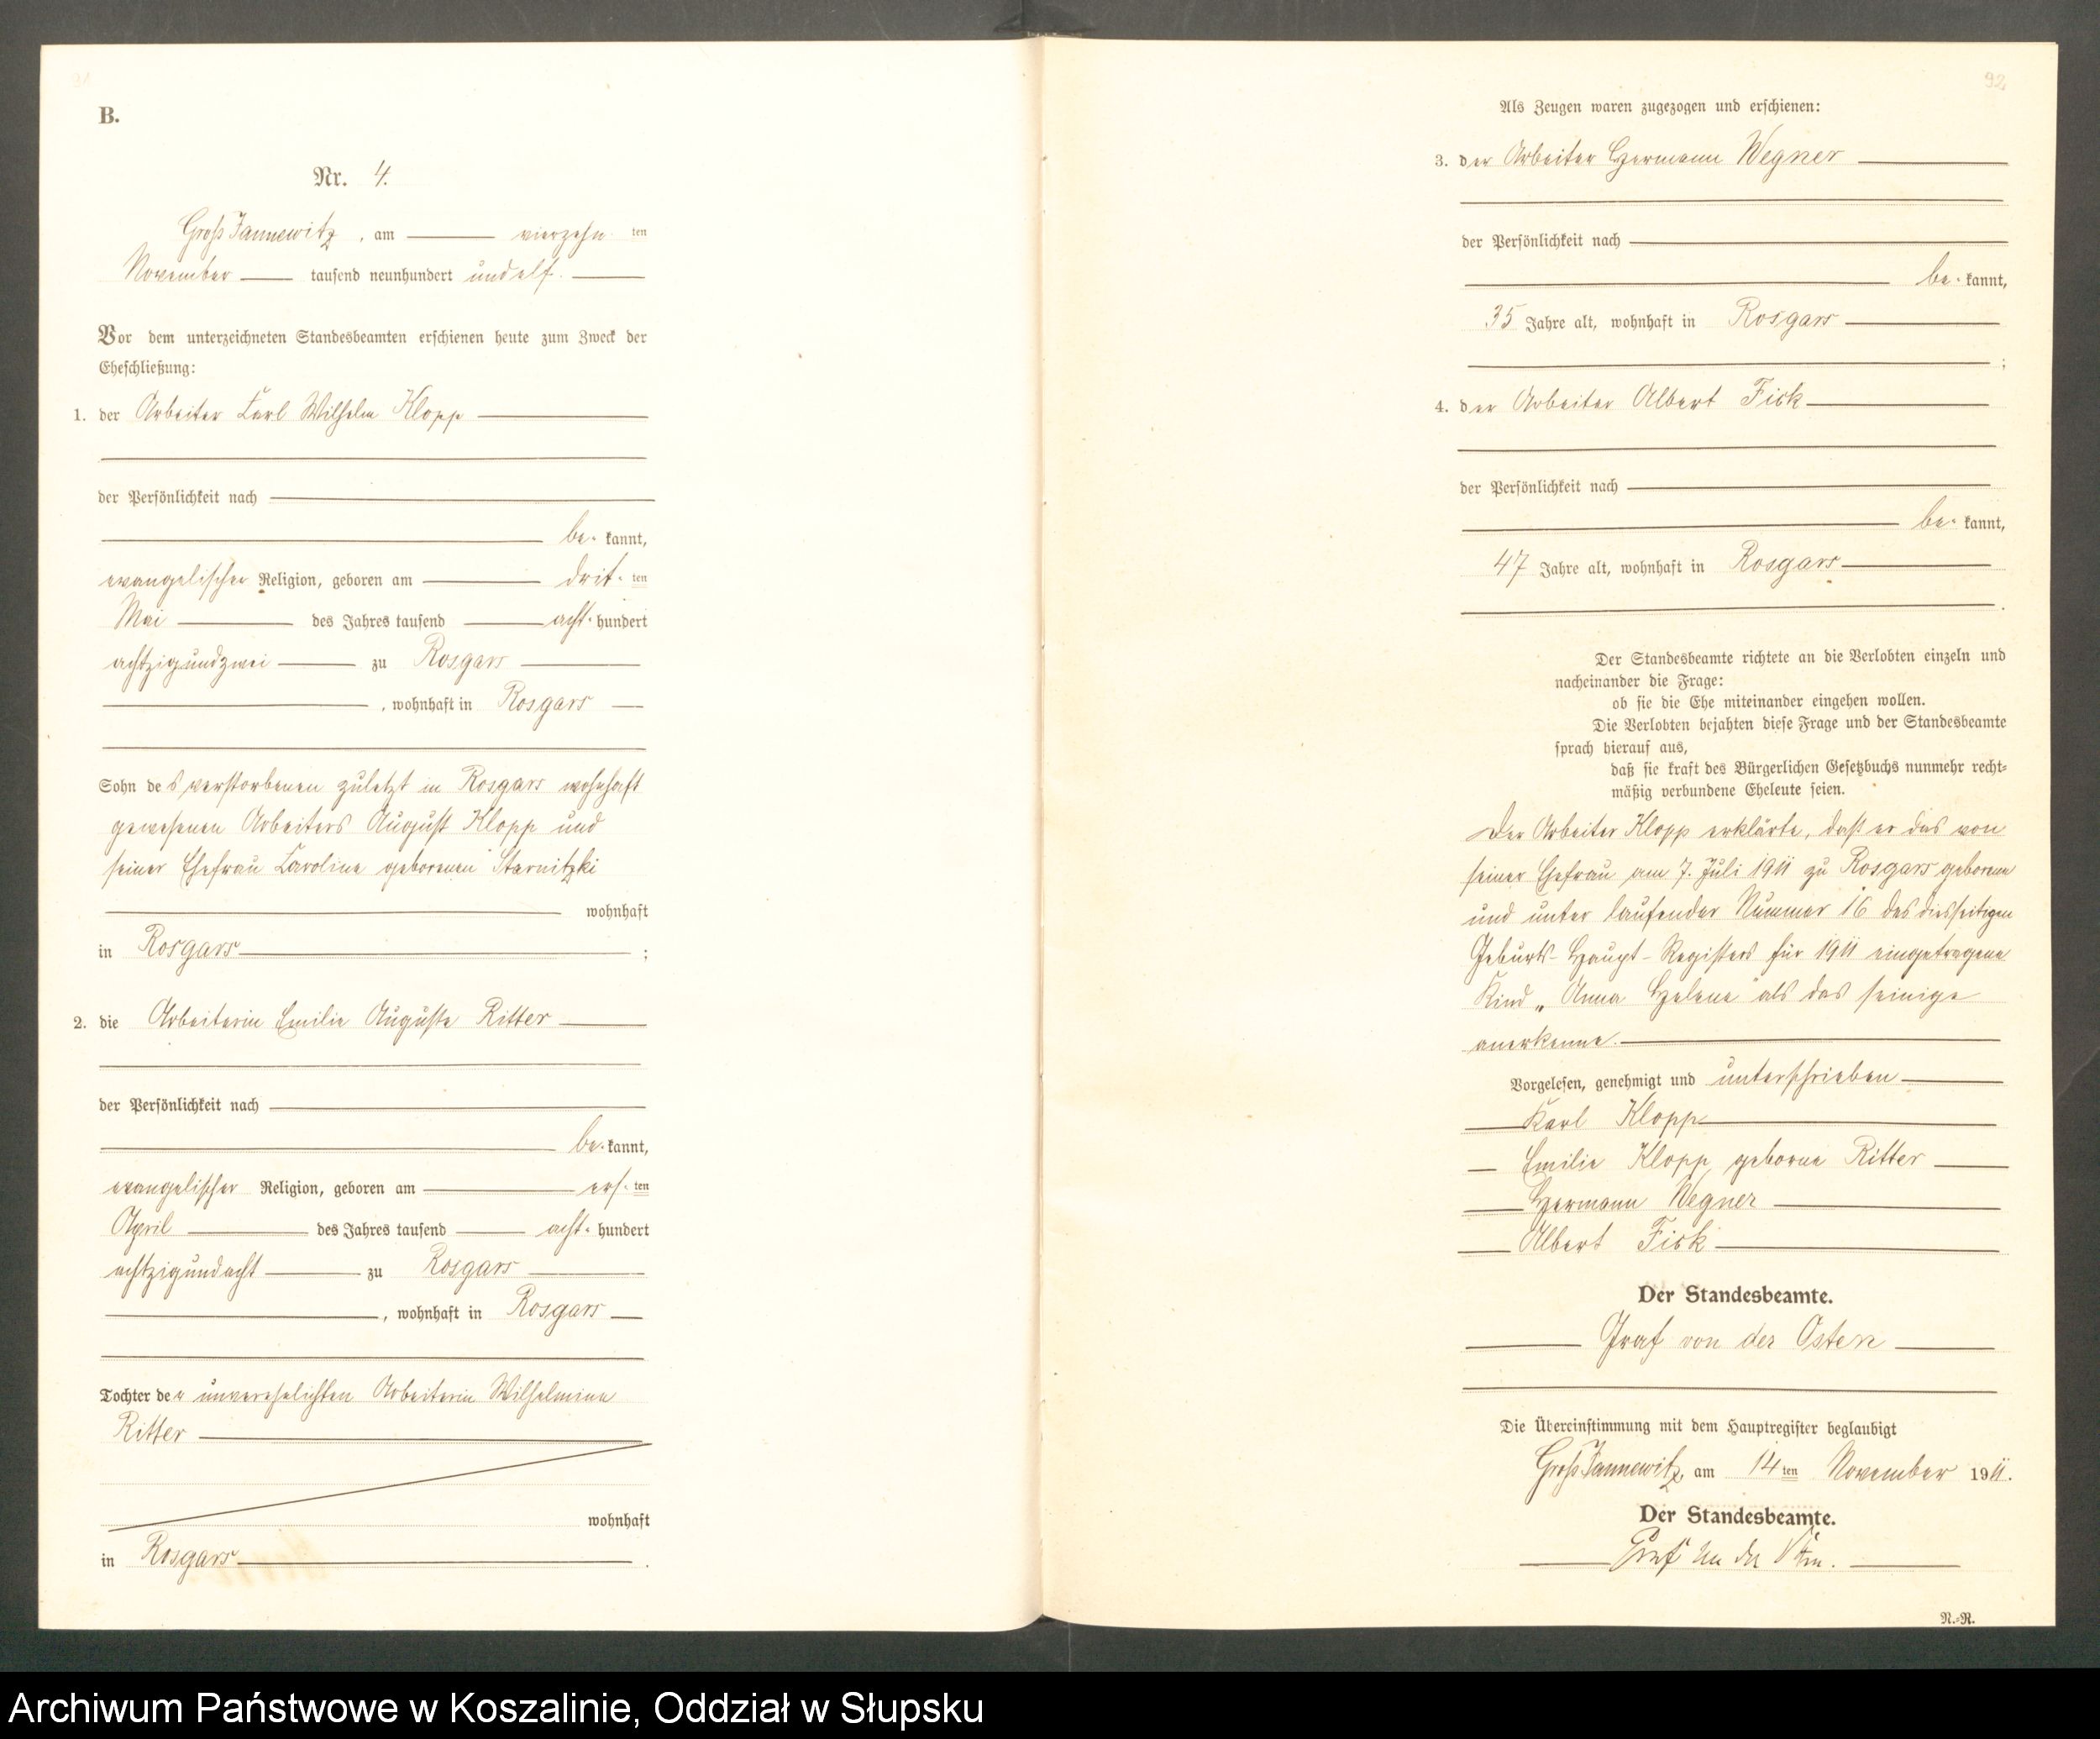 B.
Nr. 4.
Groß Jannewitz, am vierzehn ten
November tausend neunhundert undelf.
Vor dem unterzeichneten Standesbeamten erschienen heute zum Zweck der
Eheschließung:
1. der Arbeiter Carl Wilhelm Klopp
der Persönlichkeit nach
be- kannt,
evangelischer Religion, geboren am drit- ten
Mai des Jahres tausend acht- hundert
achtzigundzwei zu Rosgars
, wohnhaft in Rosgars
Sohn des verstorbenen zuletzt in Rosgars wohnhaft
gewesenen Arbeiters August Klopp und
seiner Ehefrau Caroline geborenen Starnitzki
wohnhaft
in Rosgars ;
2. die Arbeiterin Emilie Auguste Ritter
der Persönlichkeit nach
be- kannt,
evangelischer Religion, geboren am ers- ten
April des Jahres tausend acht- hundert
achtzigundacht zu Rosgars
, wohnhaft in Rosgars
Tochter der unverehelichten Arbeiterin Wilhelmine
Ritter
wohnhaft
in Rosgars .
92
Als Zeugen waren zugezogen und erschienen:
3. der Arbeiter Hermann Wegner
der Persönlichkeit nach
be- kannt,
35 Jahre alt, wohnhaft in Rosgars
;
4. der Arbeiter Albert Fick
der Persönlichkeit nach
be- kannt,
47 Jahre alt, wohnhaft in Rosgars
.
Der Standesbeamte richtete an die Verlobten einzeln und
nacheinander die Frage:
ob sie die Ehe miteinander eingehen wollen.
Die Verlobten bejahten diese Frage und der Standesbeamte
sprach hierauf aus,
daß sie kraft des Bürgerlichen Gesetzbuchs nunmehr recht-
mäßig verbundene Eheleute seien.
Der Arbeiter Klopp erklärte, daß er das von
seiner Ehefrau am 7. Juli 1911 zu Rosgars geborene
und unter laufender Nummer 16 des diesseitigen
Geburts-Haupt-Registers für 1911 eingetragene
Kind „Anna Helene" als das seinige
anerkenne.
Vorgelesen, genehmigt und unterschrieben
Karl Klopp
Emilie Klopp geborne Ritter
Hermann Wegner
Albert Fick
Der Standesbeamte.
Graf von der Osten
Die Übereinstimmung mit dem Hauptregister beglaubigt
Groß Jannewitz, am 14 ten November 1911.
Der Standesbeamte.
Graf von der Osten.
N.-R.
Archiwum Państwowe w Koszalinie, Oddział w Słupsku